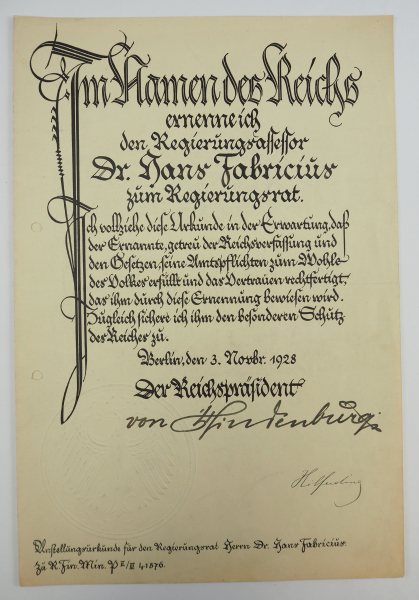 Im Namen des Reichs
ernenne ich
den Regierungsassessor
Dr. Hans Fabricius
zum Regierungsrat.
Ich vollziehe diese Urkunde in der Erwartung, daß
der Ernannte, getreu der Reichsverfassung und
den Gesetzen, seine Amtspflichten zum Wohle
des Volkes erfüllt und das Vertrauen rechtfertigt,
das ihm durch diese Ernennung bewiesen wird.
Zugleich sichere ich ihm den besonderen Schutz
des Reiches zu.
Berlin, den 3. Novbr. 1928
Der Reichspräsident
von Hindenburg
Hilferding
Anstellungsurkunde für den Regierungsrat Herrn Dr. Hans Fabricius.
Zu R. Fin. Min. P II/III 41876.